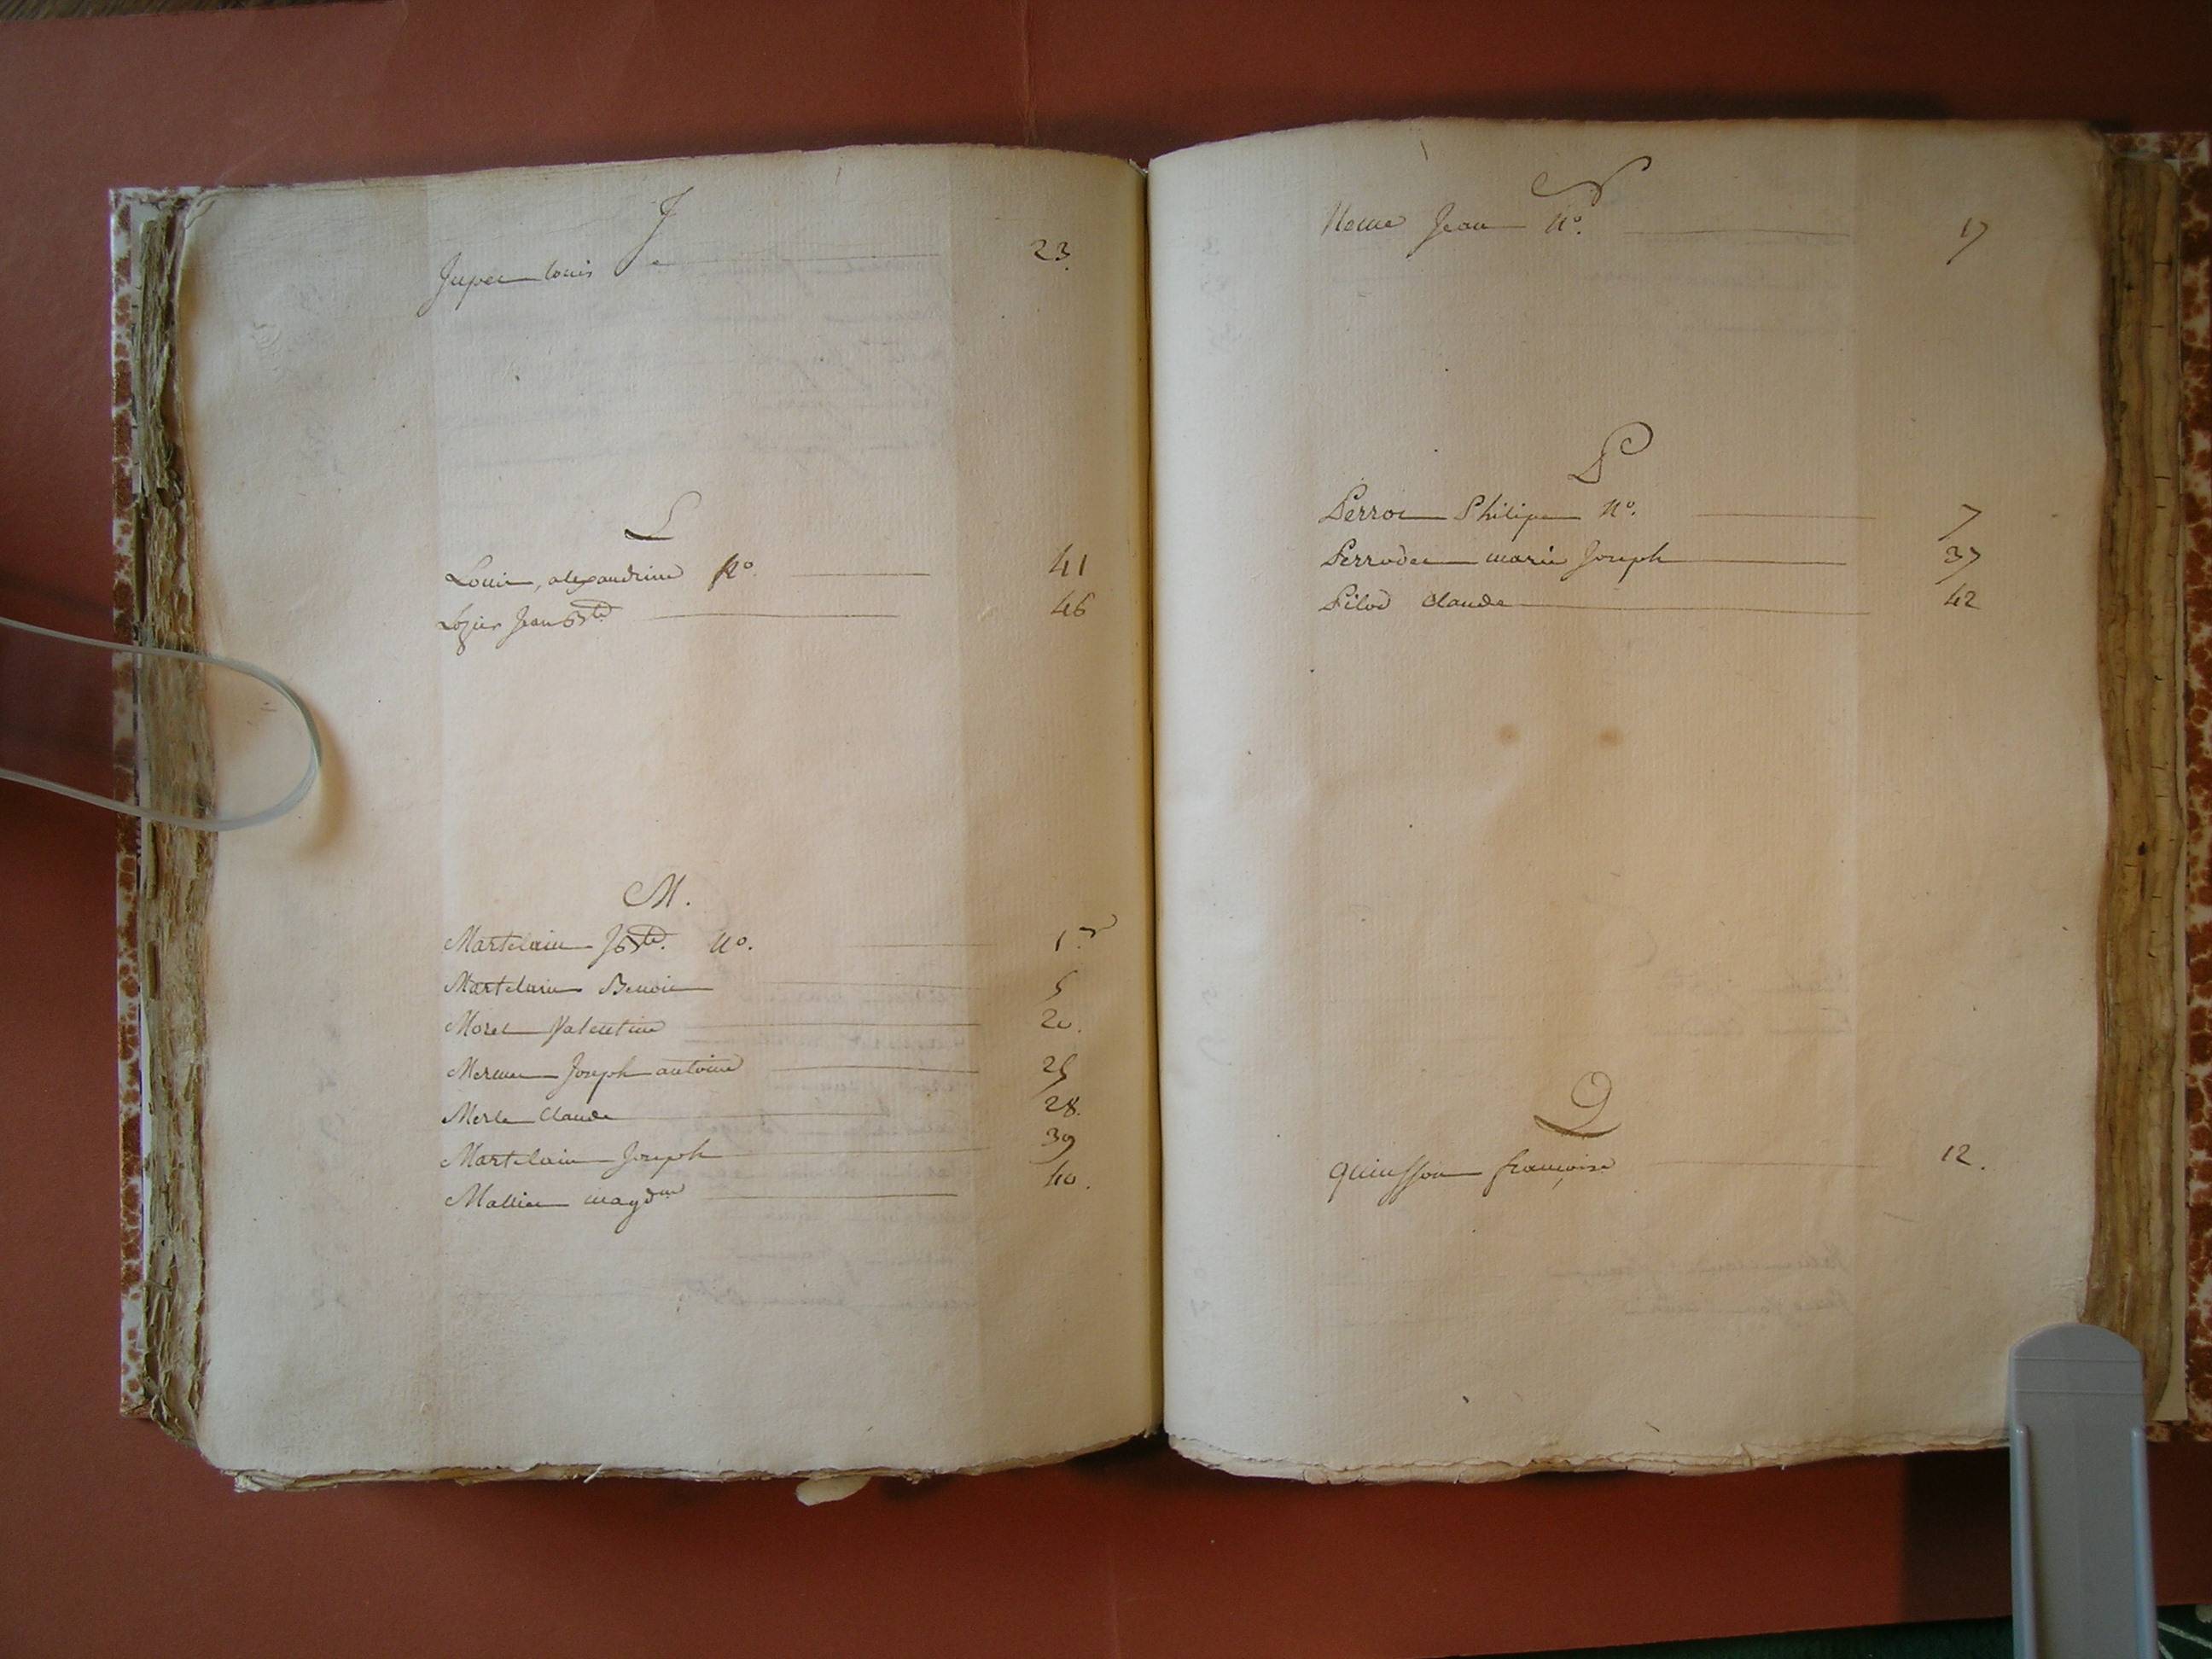 J
Jupeu Louis 23.
L
Louise, alexandrine No. 41
Lozier Jean Bte 46
M.
Martelain J Bte. No. 1er
Martelain Benoit 5
Morel Valentine 20.
Mermet Joseph antoine 25
Merle Claude 28.
Martelain Joseph 39
magdne 40.
N
Jean No. 17
P
Perrot Philipe No. 7
Perrodet marie Joseph 37
Pilod Claude 42
Q
quinsson françoise 12.